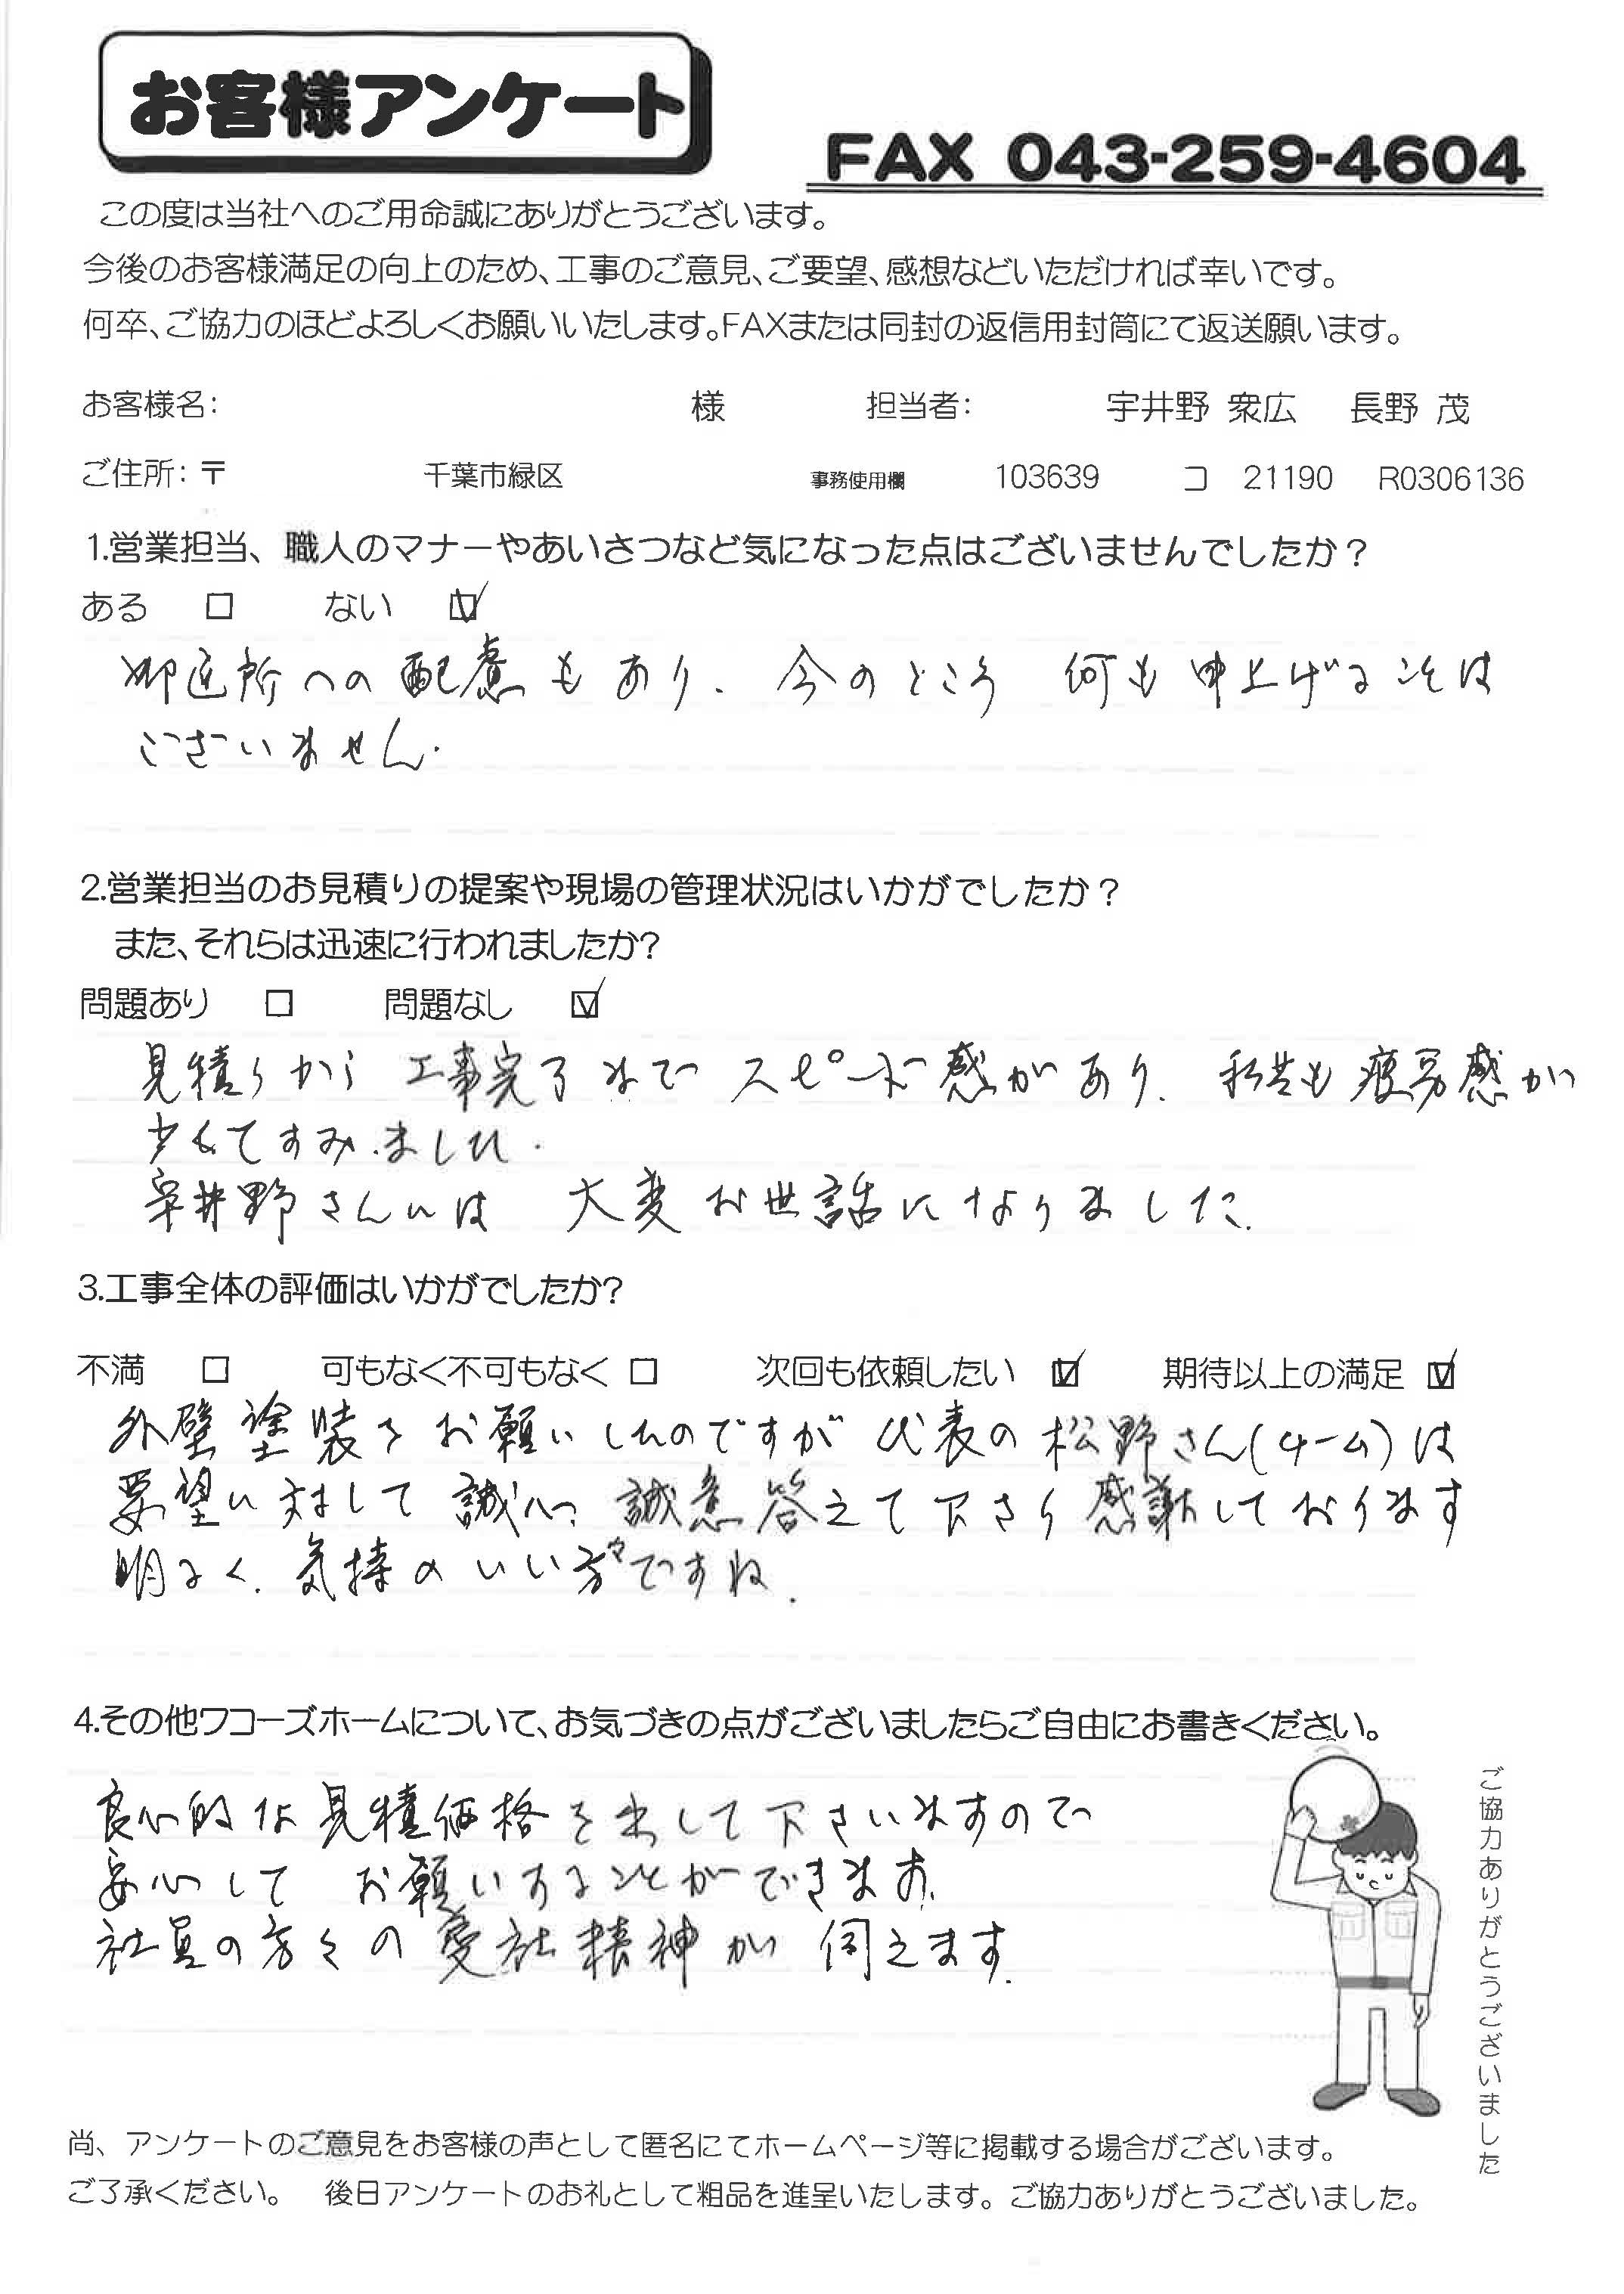 お客様アンケート
FAX 043-259-4604
この度は当社へのご用命誠にありがとうございます。
今後のお客様満足の向上のため、工事のご意見、ご要望、感想などいただければ幸いです。
何卒、ご協力のほどよろしくお願いいたします。FAXまたは同封の返信用封筒にて返送願います。
お客様名: 様 担当者: 宇井野 衆広 長野 茂
ご住所:〒 千葉市緑区 事務使用欄 103639 コ 21190 R0306136
1.営業担当、職人のマナーやあいさつなど気になった点はございませんでしたか?
ある □ ない ☑
御近所への配慮もあり、今のところ 何も申上げることは
ございません.
2.営業担当のお見積りの提案や現場の管理状況はいかがでしたか?
また、それらは迅速に行われましたか?
問題あり □ 問題なし ☑
見積りから 工事完了まで スピード感があり、私共も疲労感が
少くてすみました.
宇井野さんには 大変お世話になりました.
3.工事全体の評価はいかがでしたか?
不満 □ 可もなく不可もなく □ 次回も依頼したい ☑ 期待以上の満足 ☑
外壁塗装をお願いしたのですが 代表の松野さん(チーム)は
要望に対して 誠心 誠意 答えて下さり感謝しております
明るく、気持のいい方々ですね.
4.その他ワコーズホームについて、お気づきの点がございましたらご自由にお書きください。
良心的な見積価格を出して下さいますので
安心して お願いすることができます.
社員の方々の愛社精神が 伺えます.
ご協力ありがとうございました
尚、アンケートのご意見をお客様の声として匿名にてホームページ等に掲載する場合がございます。
ご了承ください。 後日アンケートのお礼として粗品を進呈いたします。ご協力ありがとうございました。